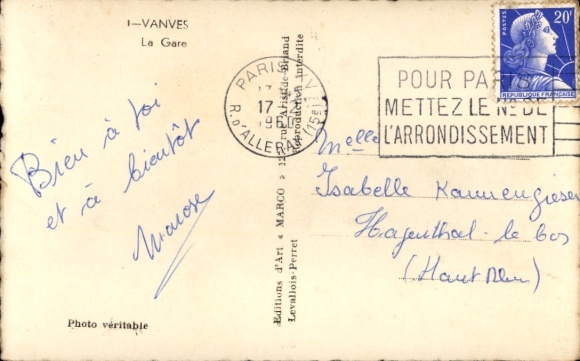 1—VANVES
La Gare
Bien à toi
et à bientôt
Photo véritable
Editions d'Art « MARCO » 12, rue Aristide-Briand
Levallois-Perret
Reproduction interdite
PARIS XV
17
R. D'ALLERAY (15e)
POUR PARIS
METTEZ LE No DE
L'ARRONDISSEMENT
POSTES
20F
REPUBLIQUE FRANÇAISE
Melle
Isabelle
Hagenthal-le-bas
(Haut Rhin)